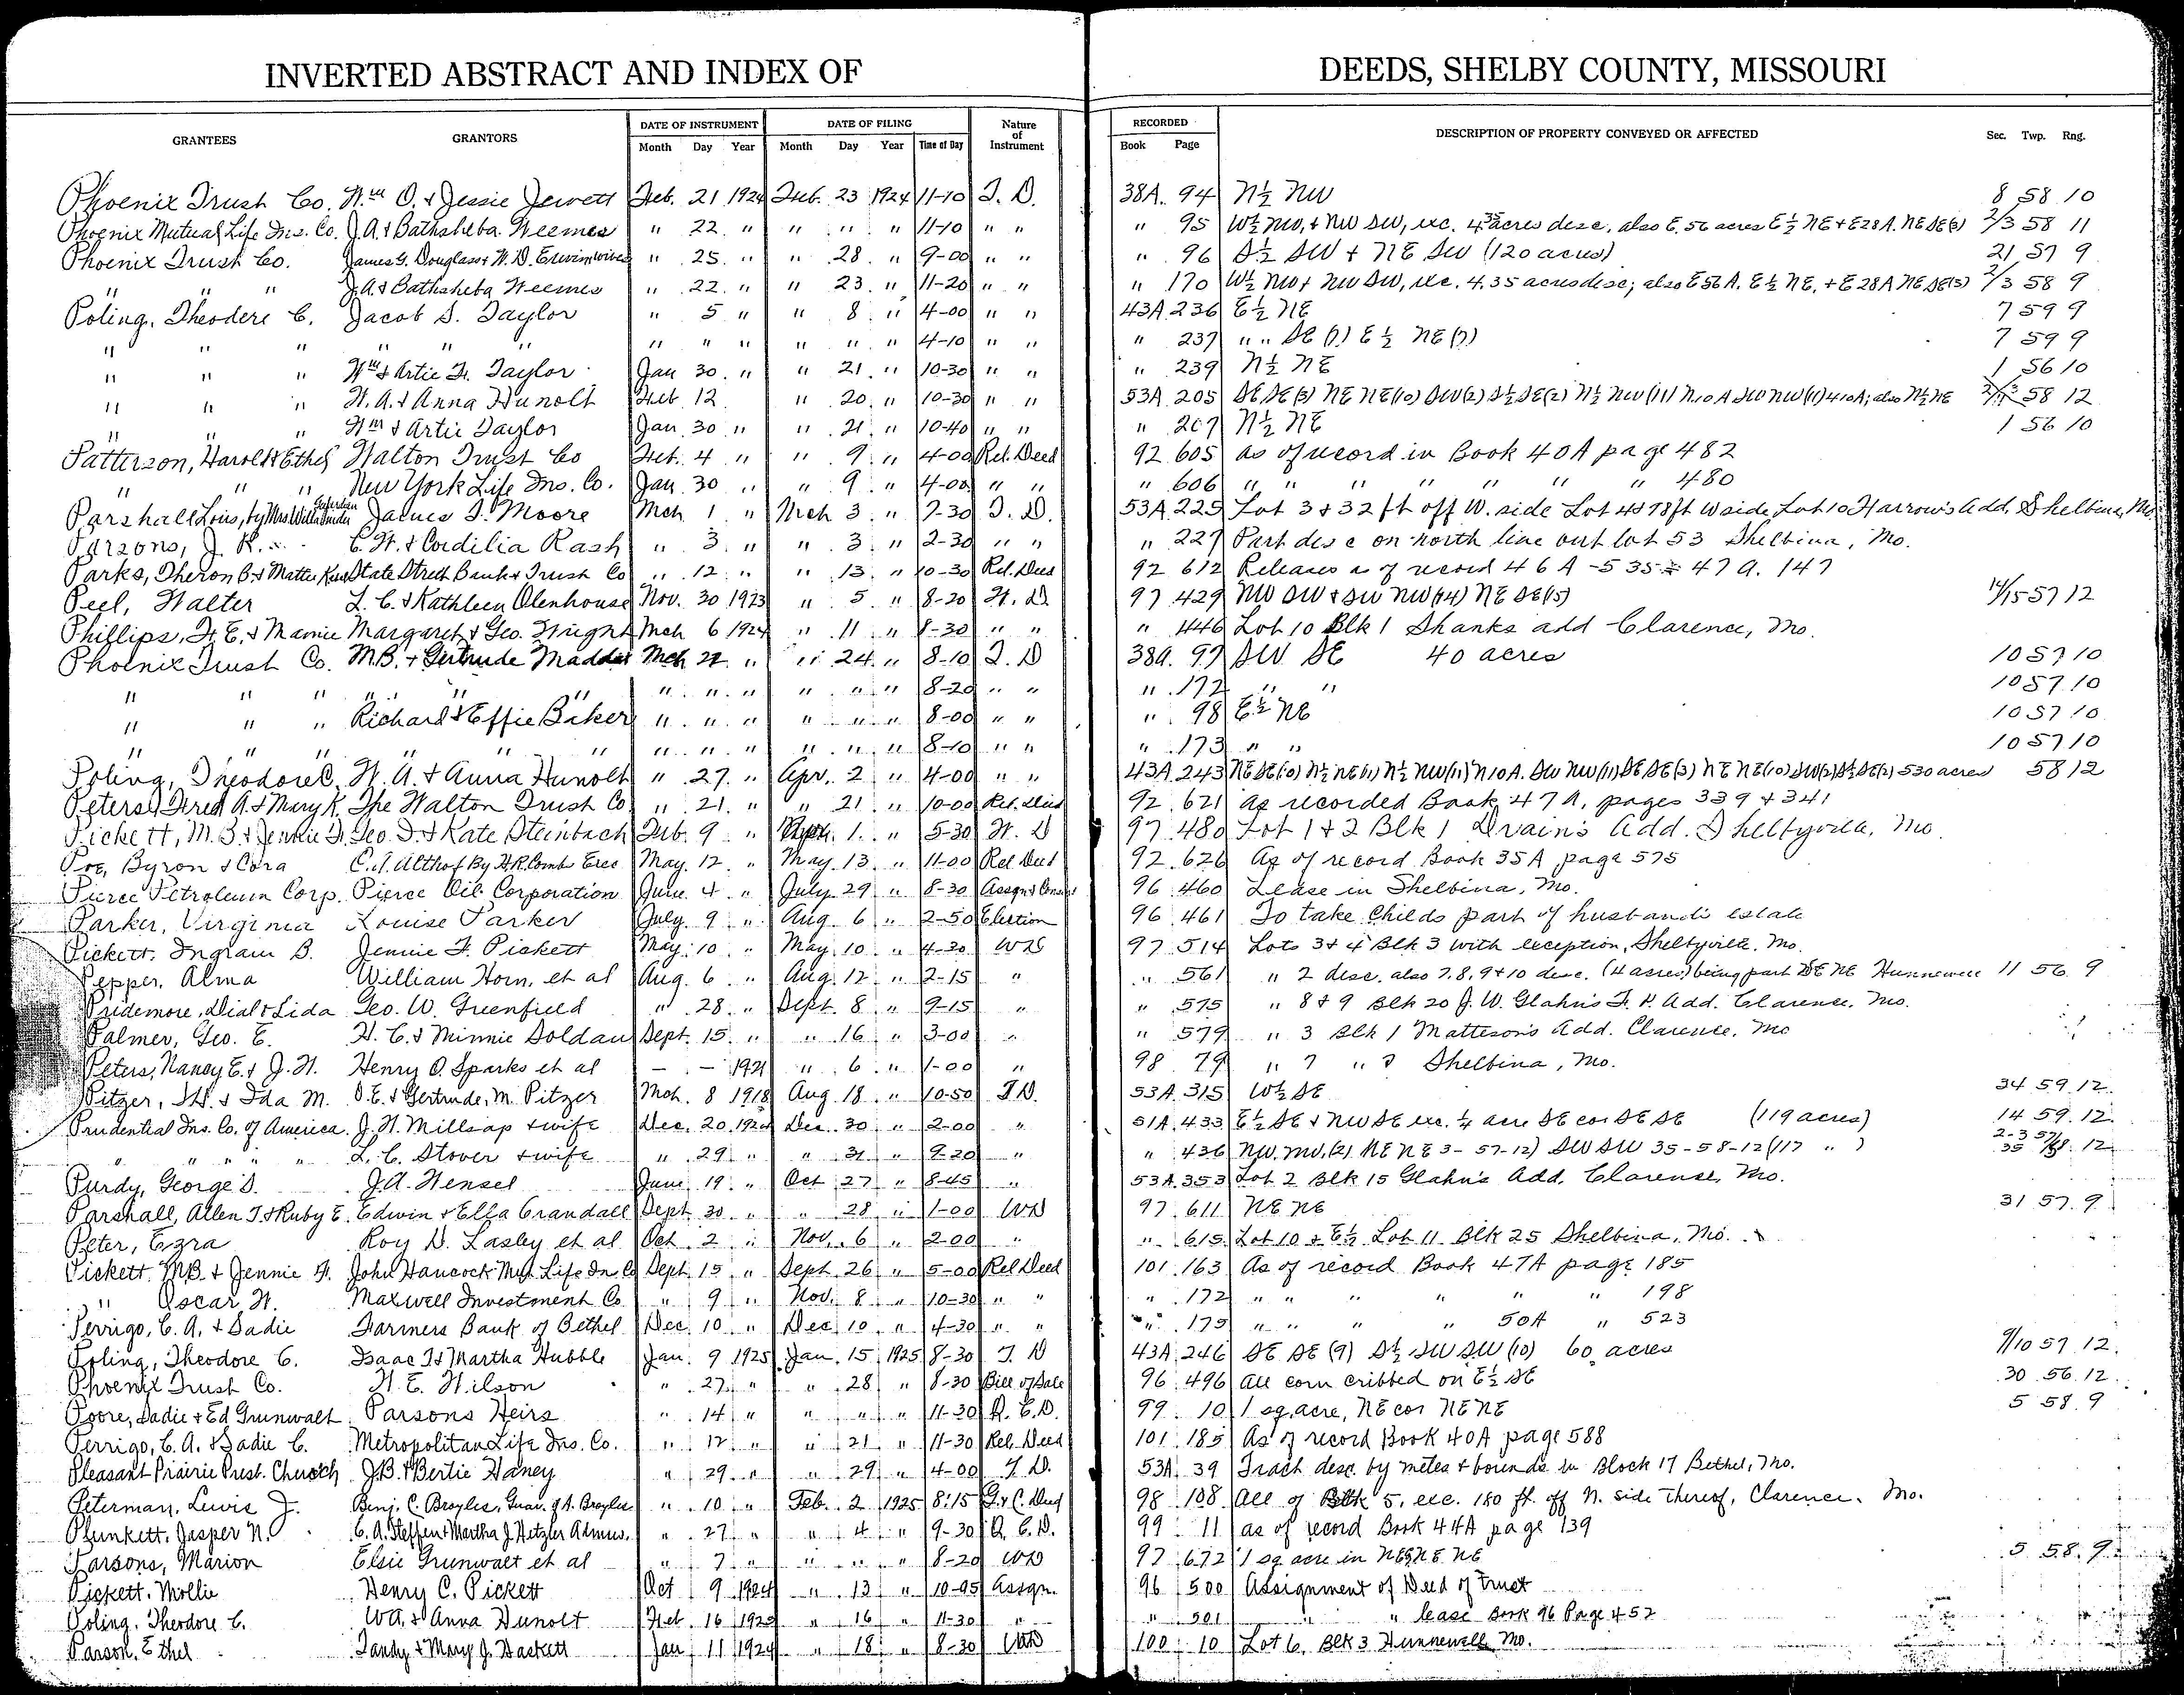 INVERTED ABSTRACT AND INDEX OF DEEDS, SHELBY COUNTY, MISSOURI
GRANTEES GRANTORS DATE OF INSTRUMENT DATE OF FILING Nature of Instrument RECORDED DESCRIPTION OF PROPERTY CONVEYED OR AFFECTED Sec. Twp. Rng.
Month Day Year Month Day Year Time of Day Book Page
Phoenix Trust Co. Wm O. & Jessie Jewett Feb. 21 1924 Feb. 23 1924 11-10 T. D. 38A. 94 N½ NW 8 58 10
Phoenix Mutual Life Ins. Co. J.A. & Bathsheba Weemes " 22 " " " " 11-10 " " " 95 W½ NW, & NW SW, exc. 4.35 acres desc. also E. 56 acres E½ NE & E28A. NE SE(3) 2/3 58 11
Phoenix Trust Co. James G. Douglass & W. D. Erwin wives " 25 " " 28 " 9-00 " " " 96 S½ SW & NE SW (120 acres) 21 57 9
" " " J.A. & Bathsheba Weemes " 22 " " 23 " 11-20 " " " 170 W½ NW & NW SW, exc. 4.35 acres desc; also E56A. E½ NE, & E28A NE SE(3) 2/3 58 9
Poling, Theodore C. Jacob S. Taylor " 5 " " 8 " 4-00 " " 43A 236 E½ NE 7 59 9
" " " " " " " " " " " " 4-10 " " " 237 " " SE (7) E½ NE (7) 7 59 9
" " " Wm & Artie F. Taylor Jan 30 " " 21 " 10-30 " " " 239 N½ NE 1 56 10
" " " W. A. & Anna Hunolt Feb 12 " 20 " 10-30 " " 53A 205 SE SE(3) NE NE(10) SW(2) S½ SE(2) N½ NW(11) N10A SW NW(11) 410A; also N½ NE 58 12
" " " Wm & Artie Taylor Jan. 30 " " 21 " 10-40 " " " 207 N½ NE 1 56 10
Patterson, Harold & Ethel Walton Trust Co Feb. 4 " " 9 " 4-00 Rel. Deed 92 605 as of record in Book 40A page 482
" " " New York Life Ins. Co. Jan 30 " " 9 " 4-00 " " " 606 " " " " " " " 480
Parshall Lois, by Mrs Willa Guardian James T. Moore Mch 1 " Mch 3 " 7-30 T. D. 53A 225 Lot 3 & 32 ft off W. side Lot 4 & 78 ft W side Lot 10 Harrow's Add, Shelbina, Mo.
Parsons, J. R. C. W. & Cordilia Rash " 3 " " 3 " 2-30 " " " 227 Part desc on north line out lot 53 Shelbina, Mo.
Parks, Theron B. & Mattie State Street Bank & Trust Co " 12 " " 13 " 10-30 Rel. Deed 92 612 Releases as of record 46A-535 & 47A. 147
Peel, Walter L. C. & Kathleen Olenhouse Nov. 30 1923 " 5 " 8-20 W. D. 97 429 NW SW & SW NW(14) NE SE(15) 14/15 57 12
Phillips, W. E. & Mamie Margaret & Geo. Wright Mch 6 1924 " 11 " 8-30 " " " 446 Lot 10 Blk 1 Shanks add Clarence, Mo.
Phoenix Trust Co. M.B. & Gertrude Maddox Mch 22 " " 24 " 8-10 T. D 38A. 97 SW SE 40 acres 10 57 10
" " " " " " " " " " " " 8-20 " " " 172 " " 10 57 10
" " " Richard & Effie Baker " " " " " " 8-00 " " " 98 E½ NE 10 57 10
" " " " " " " " " " " " 8-10 " " " 173 " " 10 57 10
Poling, Theodore C. W. A. & Anna Hunolt " 27 " Apr. 2 " 4-00 " " 43A 243 NE SE(10) N½ NE(11) N½ NW(11) N10A. SW NW(11) SE SE(3) NE NE(10) SW(2) S½ SE(2) 530 acres 58 12
Peters, Fred A. & Mary K. The Walton Trust Co " 21 " " 21 " 10-00 Rel. Deed 92 621 as recorded Book 47A, pages 339 & 341
Pickett, M. B. & Jennie F. Geo. T. & Kate Steinbach Feb. 9 " Apr. 1 " 5-30 W. D 97 480 Lot 1 & 2 Blk 1 Drain's Add. Shelbyville, Mo.
Poe, Byron & Cora C. A. Althof By H.R. Comb Exec May 12 " May 13 " 11-00 Rel Deed 92 626 As of record Book 35A page 575
Pierce Petroleum Corp. Pierce Oil Corporation June 4 " July 29 " 8-30 Assgn & Consent 96 460 Lease in Shelbina, Mo.
Parker, Virginia Louise Parker July 9 " Aug. 6 " 2-50 Election 96 461 To take Childs part of husbands estate
Pickett, Ingram B. Jennie F. Pickett May 10 " May 10 " 4-30 WD 97 514 Lots 3 & 4 Blk 3 with exception, Shelbyville, Mo.
Pepper, Alma William Horn, et al Aug. 6 " Aug. 12 " 2-15 " " 561 " 2 desc. also 7, 8, 9 & 10 desc. (4 acres) being part SE NE Hunnewell 11 56 9
Pridemore, Dial & Lida Geo. W. Greenfield " 28 " Sept. 8 " 9-15 " " 575 " 8 & 9 Blk 20 J. W. Glahn's F. P. Add. Clarence, Mo.
Palmer, Geo. E. H. C. & Minnie Soldan Sept. 15 " " 16 " 3-00 " " 579 " 3 Blk 1 Matteson's Add. Clarence, Mo
Peters, Nancy E. & J. H. Henry O. Sparks et al - - 1921 " 6 " 1-00 " 98 79 " 7 " 8 Shelbina, Mo.
Pitzer, J.W. & Ida M. O. E. & Gertrude, M. Pitzer Mch. 8 1918 Aug. 18 " 10-50 T D. 53A 315 W½ SE 34 59 12
Prudential Ins. Co. of America. J. H. Millsap & wife Dec. 20 1924 Dec. 30 " 2-00 " 51A. 433 E½ SE & NW SE exc. ¼ acre SE cor SE SE (119 acres) 14 59 12
" " " " " L. C. Stover & wife " 29 " " 31 " 9-20 " " 436 NW. NW. (2) NE NE 3-57-12) SW SW 35-58-12 (117 " ) 2-3 57/58 12
Purdy, George S. J. A. Hensel June 19 " Oct 27 " 8-45 " 53A 353 Lot 2 Blk 15 Glahn's Add, Clarence, Mo.
Parshall, Allen T. & Ruby E. Edwin & Ella Crandall Sept 30 " " 28 " 1-00 WD 97 611 NE NE 31 57 9
Peter, Ezra Roy D. Lasley et al Oct. 2 " Nov. 6 " 2-00 " " 615 Lot 10 & E½ Lot 11 Blk 25 Shelbina, Mo.
Pickett M.B. & Jennie F. John Hancock Mut. Life In Co Sept 15 " Sept. 26 " 5-00 Rel Deed 101 163 As of record Book 47A page 185
" Oscar W. Maxwell Investment Co " 9 " Nov. 8 " 10-30 " " " 172 " " " " " 198
Perrigo, C. A. & Sadie Farmers Bank of Bethel Dec. 10 " Dec. 10 " 4-30 " " " 175 " " " " 50A " 523
Poling, Theodore C. Isaac T & Martha Hubble Jan. 9 1925 Jan. 15 1925 8-30 T. D 43A 246 SE SE (9) S½ SW SW (10) 60 acres 9/10 57 12
Phoenix Trust Co. H. E. Wilson " 27 " " 28 " 8-30 Bill of Sale 96 496 all corn cribbed on E½ SE 30 56 12
Poore, Sadie & Ed Grunwalt Parsons Heirs " 14 " " " " 11-30 Q. C. D. 99 10 1 sq. acre, NE cor NE NE 5 58 9
Perrigo, C. A. & Sadie C. Metropolitan Life Ins. Co. " 12 " " 21 " 11-30 Rel. Deed 101 185 As of record Book 40A page 588
Pleasant Prairie Prest. Church J. B. & Bertie Haney " 29 " " 29 " 4-00 T. D. 53A 39 Tract desc. by metes & bounds in Block 17 Bethel, Mo.
Peterman, Lewis J. Benj. C. Broyles, Guar. of A. Broyles " 10 " Feb. 2 1925 8:15 G. & C. Deed 98 108 All of Blk 5, exc. 180 ft. off N. side thereof, Clarence, Mo.
Plunkett, Jasper N. C. A. Steffen & Martha J. Hetzler Admrs. " 27 " " 4 " 9-30 Q. C. D. 99 11 as of record Book 44A page 139
Parsons, Marion Elsie Grunwalt et al " 7 " " " " 8-20 WD 97 672 1 sq acre in NE NE NE 5 58 9
Pickett, Mollie Henry C. Pickett Oct 9 1924 " 13 " 10-95 Assgn. 96 500 Assignment of Deed of Trust
Poling, Theodore C. W.A. & Anna Hunolt Feb 16 1925 " 16 " 11-30 " " 501 " " lease Book 96 Page 452
Parson, Ethel Tandy & Mary J. Hackett Jan 11 1924 " 18 " 8-30 WD 100 10 Lot 6, Blk 3 Hunnewell, Mo.